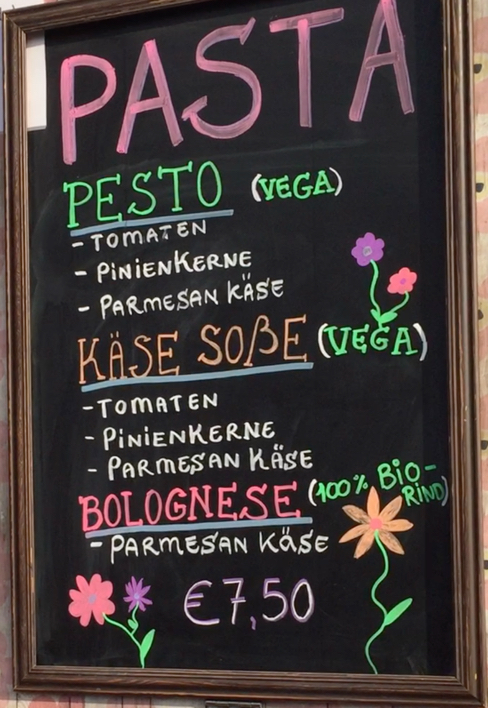 PASTA
PESTO (VEGA)
- TOMATEN
- PINIENKERNE
- PARMESAN KÄSE
KÄSE SOßE (VEGA)
- TOMATEN
- PINIENKERNE
- PARMESAN KÄSE
BOLOGNESE (100% BIO-
RIND)
- PARMESAN KÄSE
€7,50